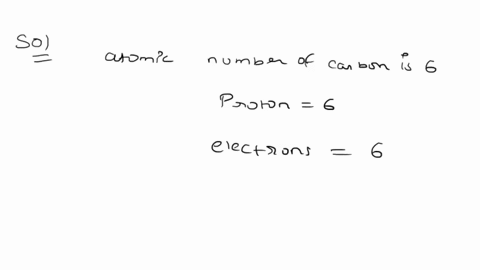 Sol
atomic number of carbon is 6
Proton = 6
electrons = 6